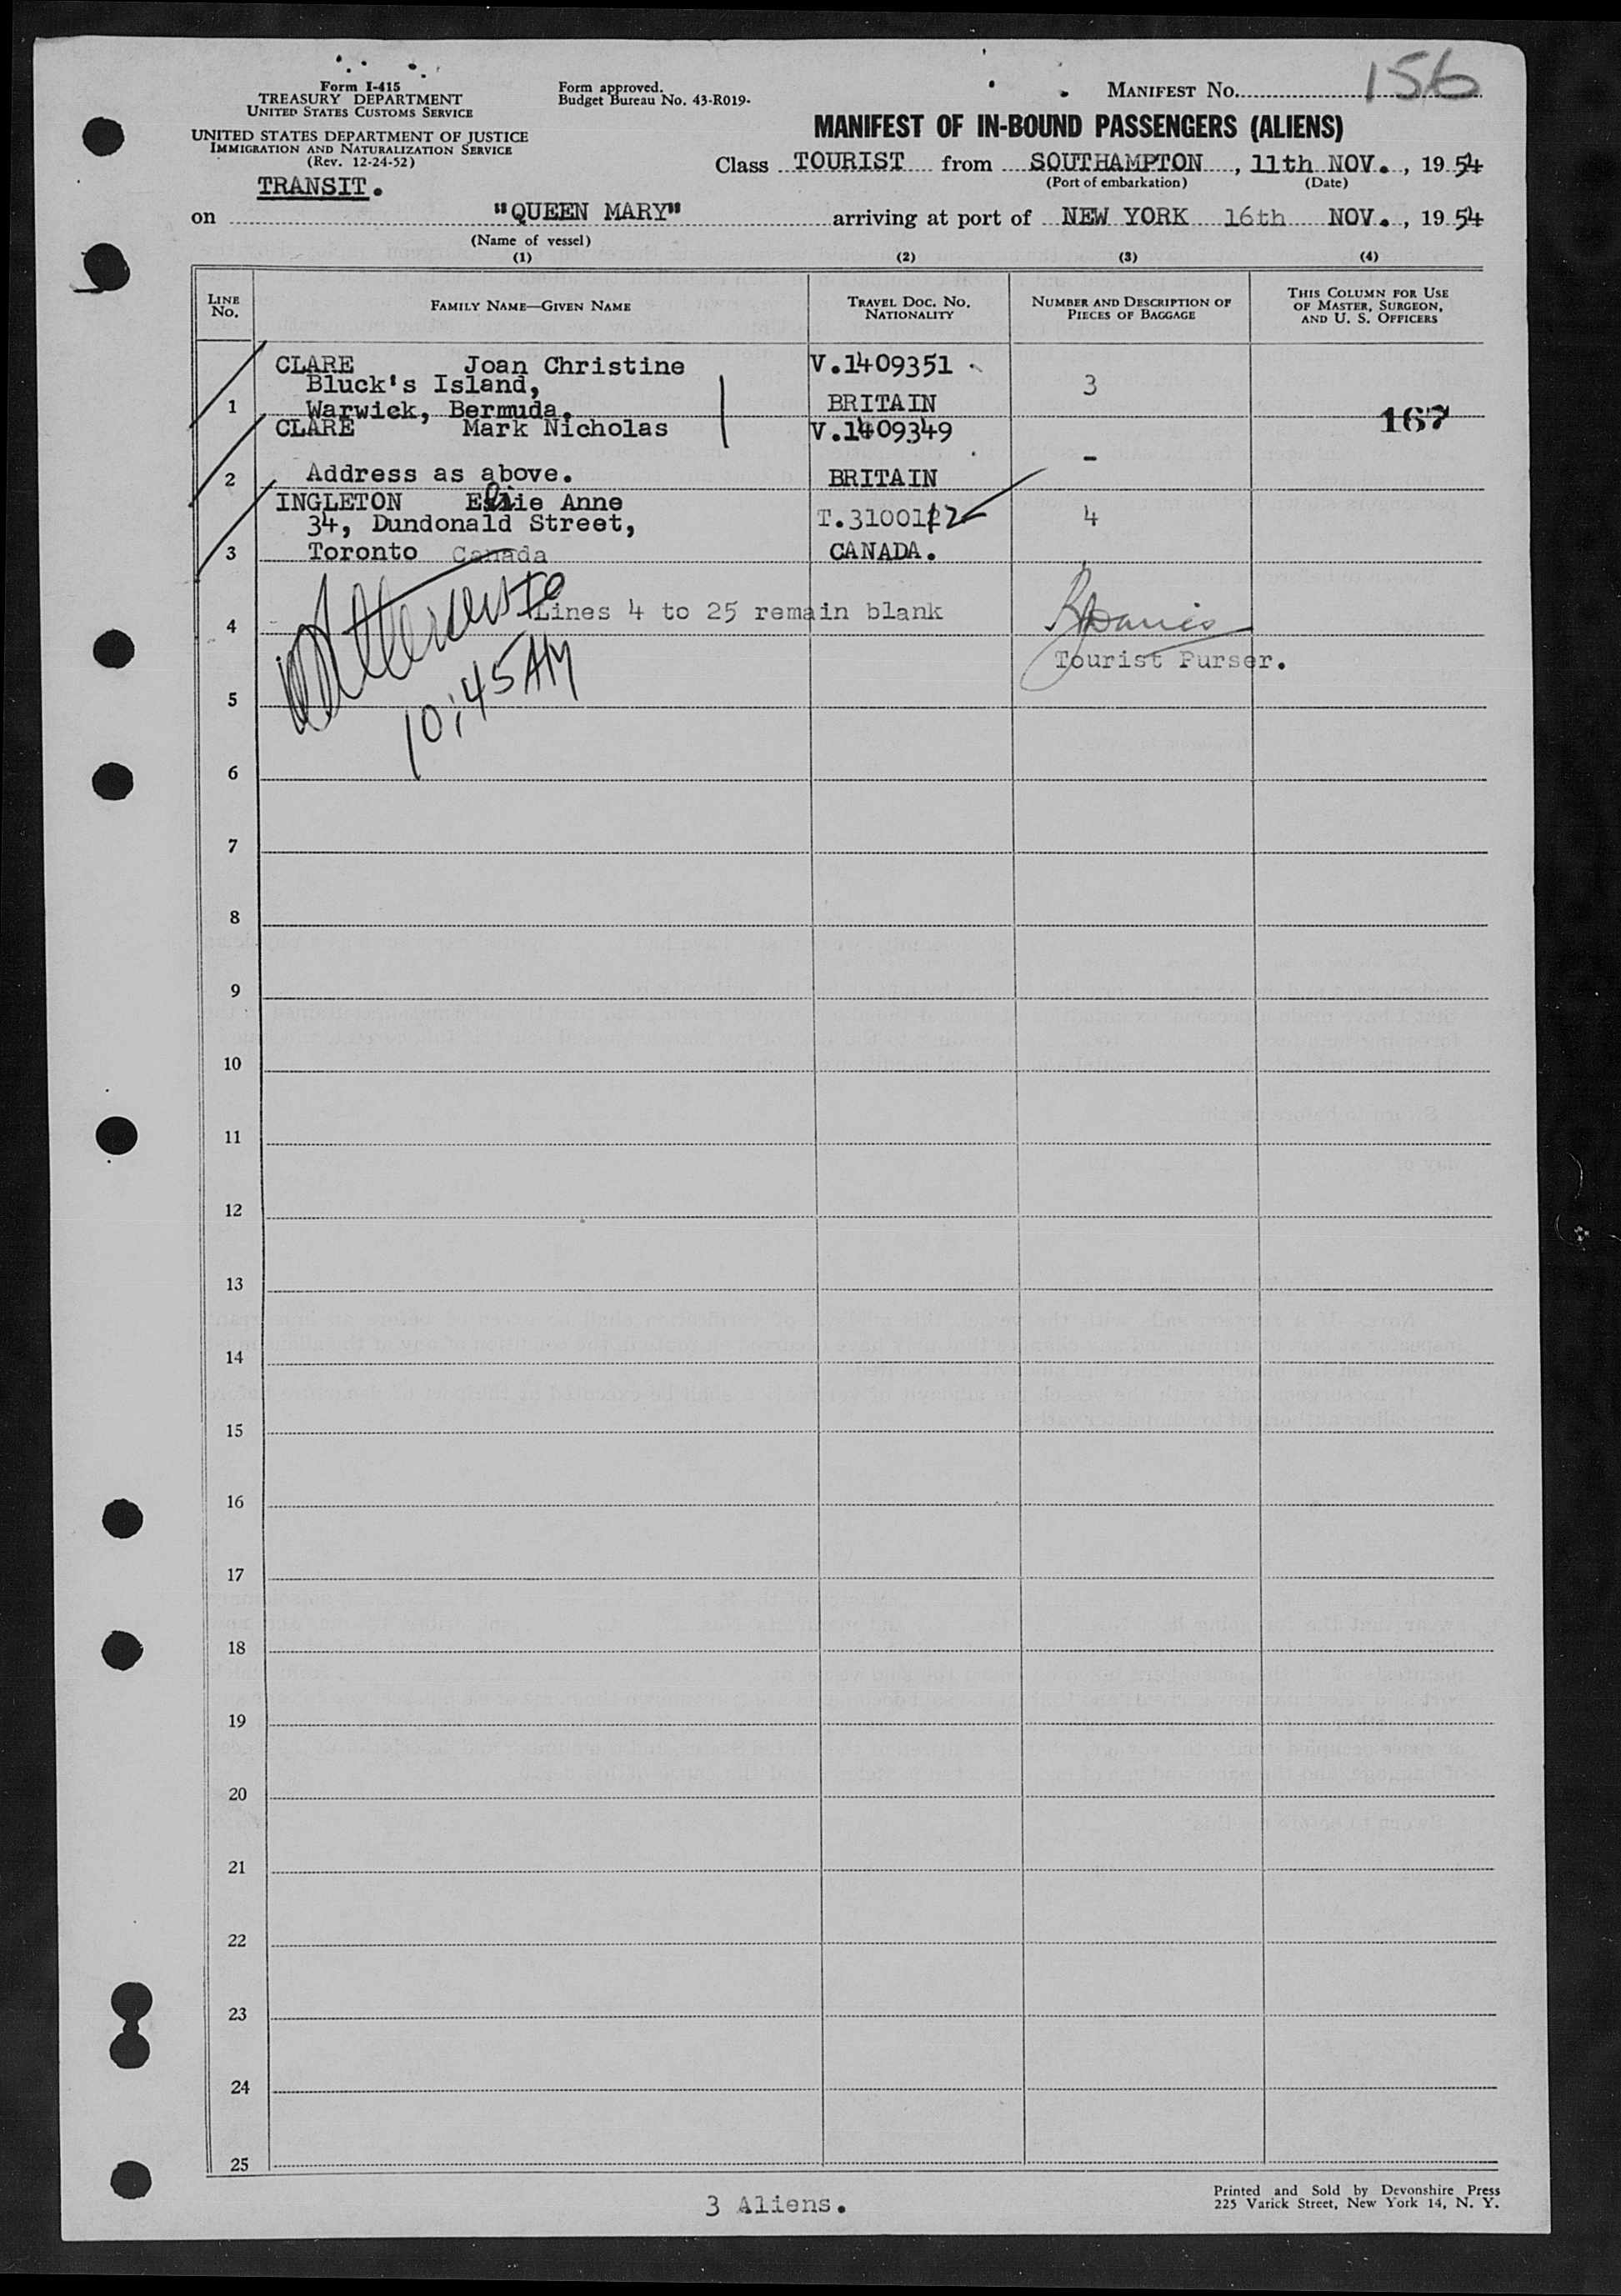 Form I-415
TREASURY DEPARTMENT
UNITED STATES CUSTOMS SERVICE
UNITED STATES DEPARTMENT OF JUSTICE
IMMIGRATION AND NATURALIZATION SERVICE
(Rev. 12-24-52)
TRANSIT.
Form approved.
Budget Bureau No. 43-R019-
MANIFEST No. 156
MANIFEST OF IN-BOUND PASSENGERS (ALIENS)
Class TOURIST from SOUTHAMPTON, 11th NOV., 1954
(Port of embarkation) (Date)
on "QUEEN MARY" arriving at port of NEW YORK 16th NOV., 1954
(Name of vessel)
(1) (2) (3) (4)
LINE No. FAMILY NAME—GIVEN NAME TRAVEL DOC. NO. NATIONALITY NUMBER AND DESCRIPTION OF PIECES OF BAGGAGE THIS COLUMN FOR USE OF MASTER, SURGEON, AND U. S. OFFICERS
CLARE Joan Christine V.1409351
Bluck's Island, 3
1 Warwick, Bermuda. BRITAIN
167
CLARE Mark Nicholas V.1409349
-
2 Address as above. BRITAIN
INGLETON Anne
34, Dundonald Street, T.310012 4
3 Toronto Canada CANADA.
Lines 4 to 25 remain blank
4
Tourist Purser.
10:45 AM
5
6
7
8
9
10
11
12
13
14
15
16
17
18
19
20
21
22
23
24
25
3 Aliens.
Printed and Sold by Devonshire Press
225 Varick Street, New York 14, N. Y.